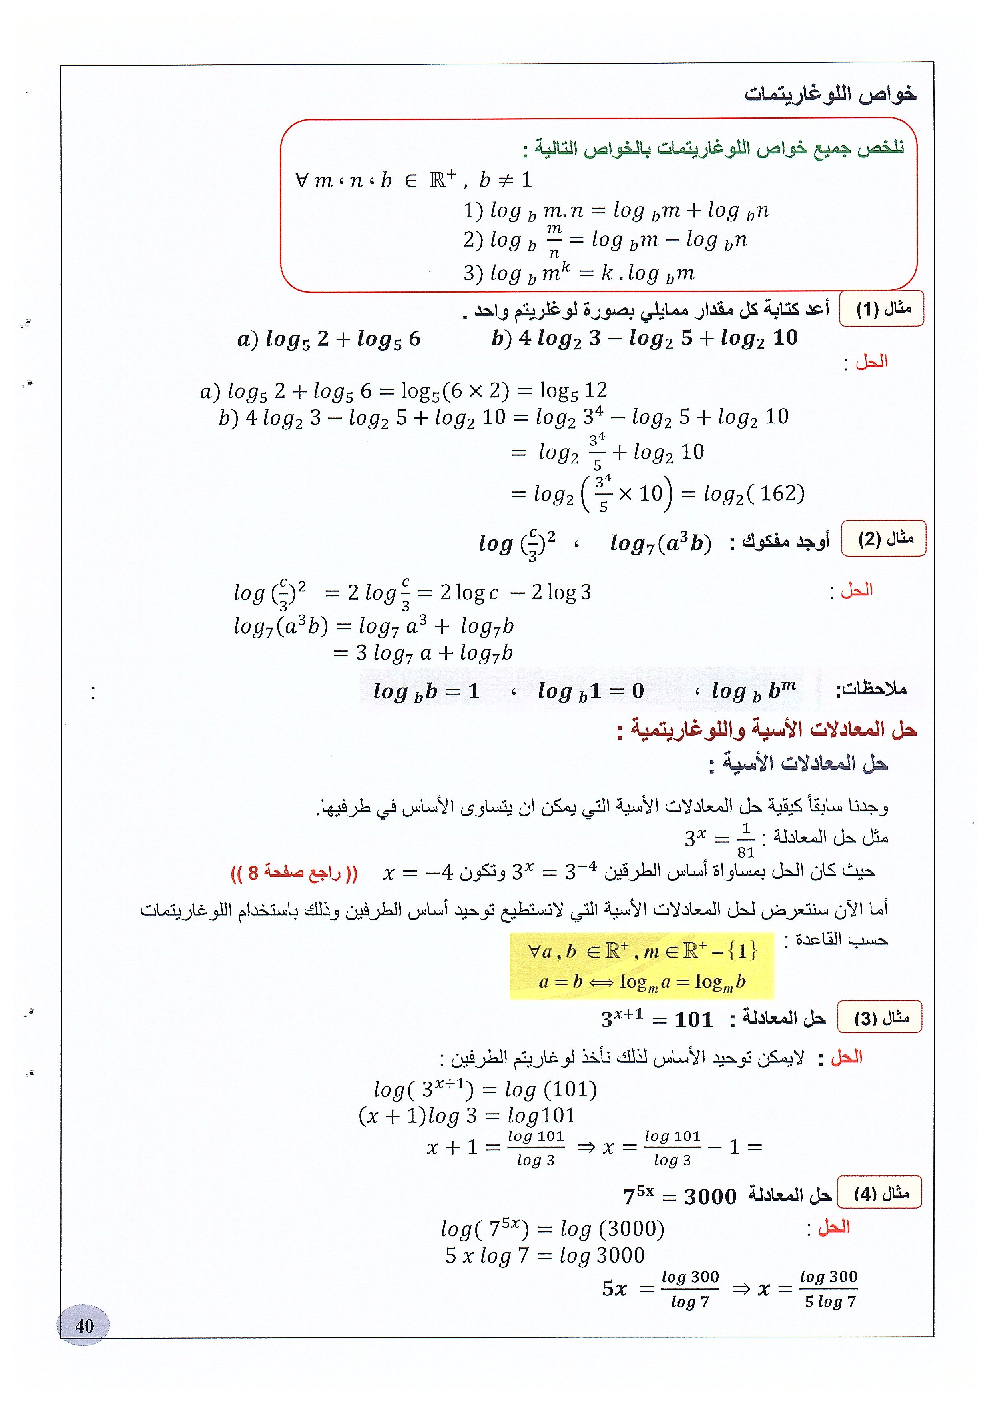 خواص اللوغاريتمات
نلخص جميع خواص اللوغاريتمات بالخواص التالية :
∀ m ، n ، b ∈ ℝ⁺ , b ≠ 1
1) log b m.n = log b m + log b n
2) log b m/n = log b m − log b n
3) log b mᵏ = k . log b m
مثال (1) أعد كتابة كل مقدار ممايلي بصورة لوغاريتم واحد .
a) log₅ 2 + log₅ 6 b) 4 log₂ 3 − log₂ 5 + log₂ 10
الحل :
a) log₅ 2 + log₅ 6 = log₅(6 × 2) = log₅ 12
b) 4 log₂ 3 − log₂ 5 + log₂ 10 = log₂ 3⁴ − log₂ 5 + log₂ 10
= log₂ 3⁴/5 + log₂ 10
= log₂ (3⁴/5 × 10) = log₂( 162)
مثال (2) أوجد مفكوك : log₇(a³b) ، log (c/3)²
الحل :
log (c/3)² = 2 log c/3 = 2 log c − 2 log 3
log₇(a³b) = log₇ a³ + log₇b
= 3 log₇ a + log₇b
ملاحظات: log b bᵐ ، log b 1 = 0 ، log b b = 1 :
حل المعادلات الأسية واللوغاريتمية :
حل المعادلات الأسية :
وجدنا سابقاً كيفية حل المعادلات الأسية التي يمكن ان يتساوى الأساس في طرفيها.
مثل حل المعادلة : 3ˣ = 1/81
حيث كان الحل بمساواة أساس الطرفين 3ˣ = 3⁻⁴ وتكون x = −4 (( راجع صفحة 8 ))
أما الآن سنتعرض لحل المعادلات الأسية التي لانستطيع توحيد أساس الطرفين وذلك باستخدام اللوغاريتمات
حسب القاعدة :
∀a , b ∈ℝ⁺ , m ∈ℝ⁺ −{1}
a = b ⟺ logₘ a = logₘ b
مثال (3) حل المعادلة : 3ˣ⁺¹ = 101
الحل : لايمكن توحيد الأساس لذلك نأخذ لوغاريتم الطرفين :
log( 3ˣ⁺¹) = log (101)
(x + 1)log 3 = log101
x + 1 = log 101/log 3 ⇒ x = log 101/log 3 − 1 =
مثال (4) حل المعادلة 7⁵ˣ = 3000
الحل :
log( 7⁵ˣ) = log (3000)
5 x log 7 = log 3000
5x = log 300/log 7 ⇒ x = log 300/5 log 7
40